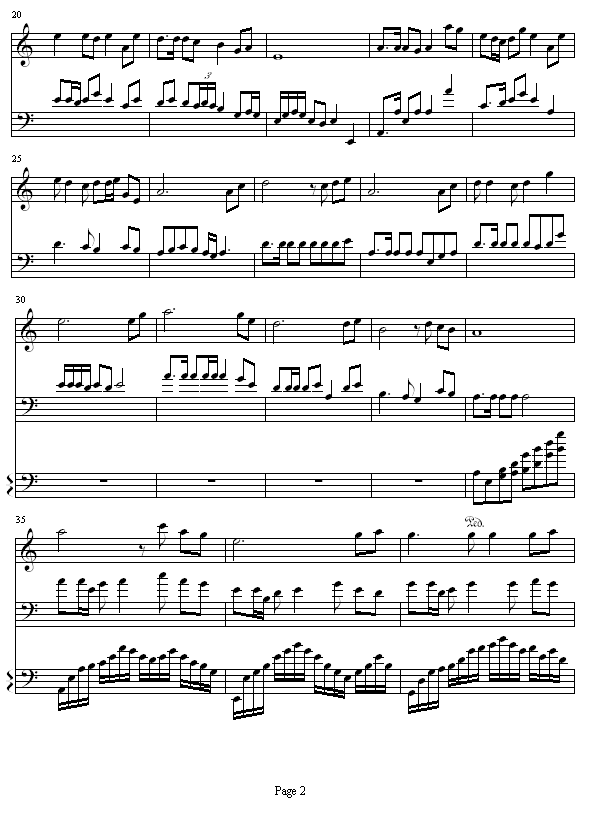 20
3
25
30
35
Ped.
Page 2